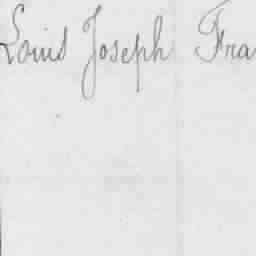 Louis Joseph Fra